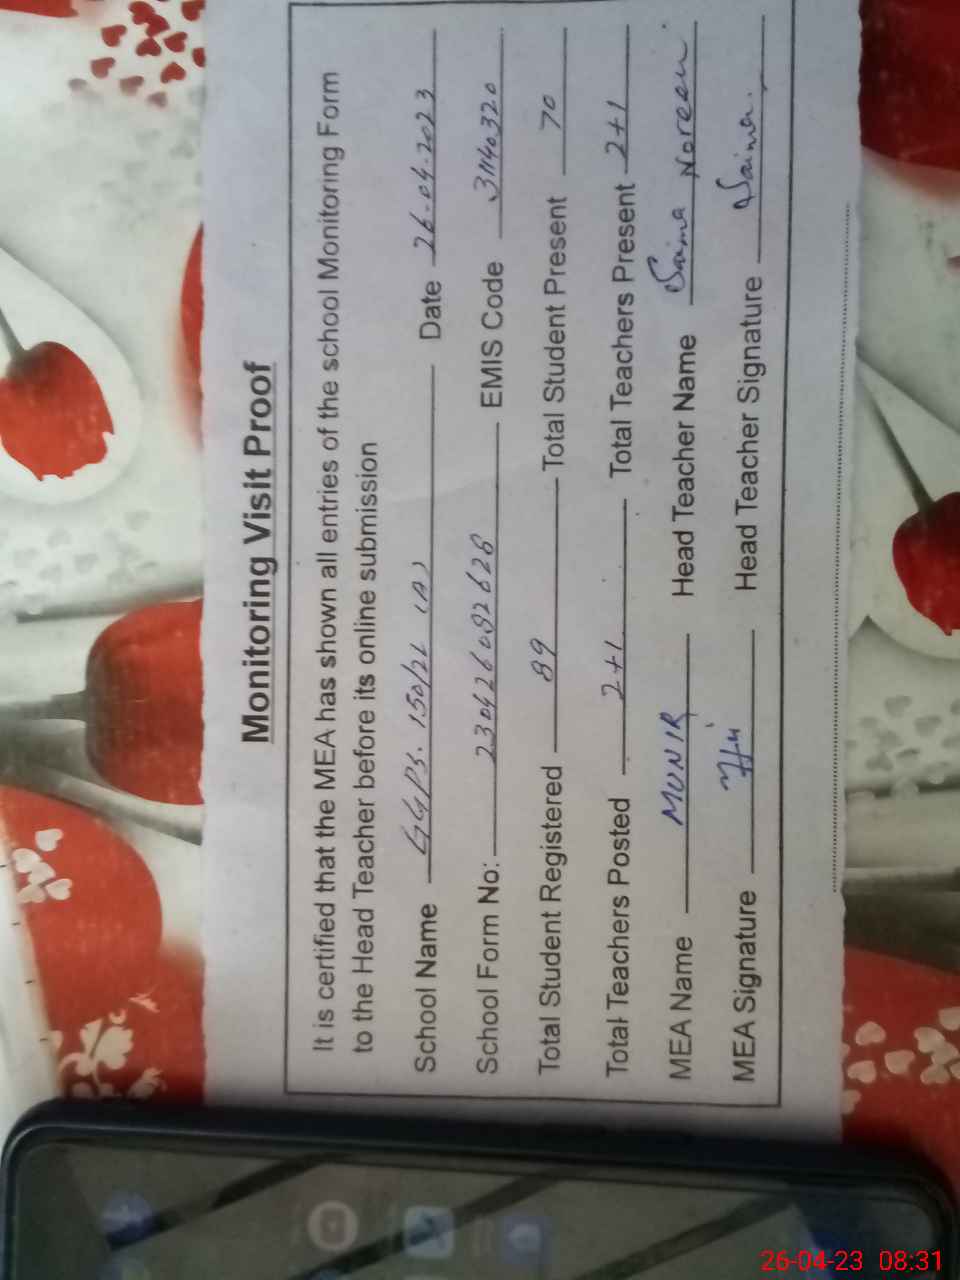 Monitoring Visit Proof
It is certified that the MEA has shown all entries of the school Monitoring Form
to the Head Teacher before its online submission
School Name GGPS. 150/2L (A) Date 26-04-2023
School Form No: 230426092628 EMIS Code 31140320
Total Student Registered 89 Total Student Present 70
Total Teachers Posted 2+1 Total Teachers Present 2+1
MEA Name MUNIR Head Teacher Name Saima Noreen
MEA Signature Head Teacher Signature Saima.
26-04-23 08:31